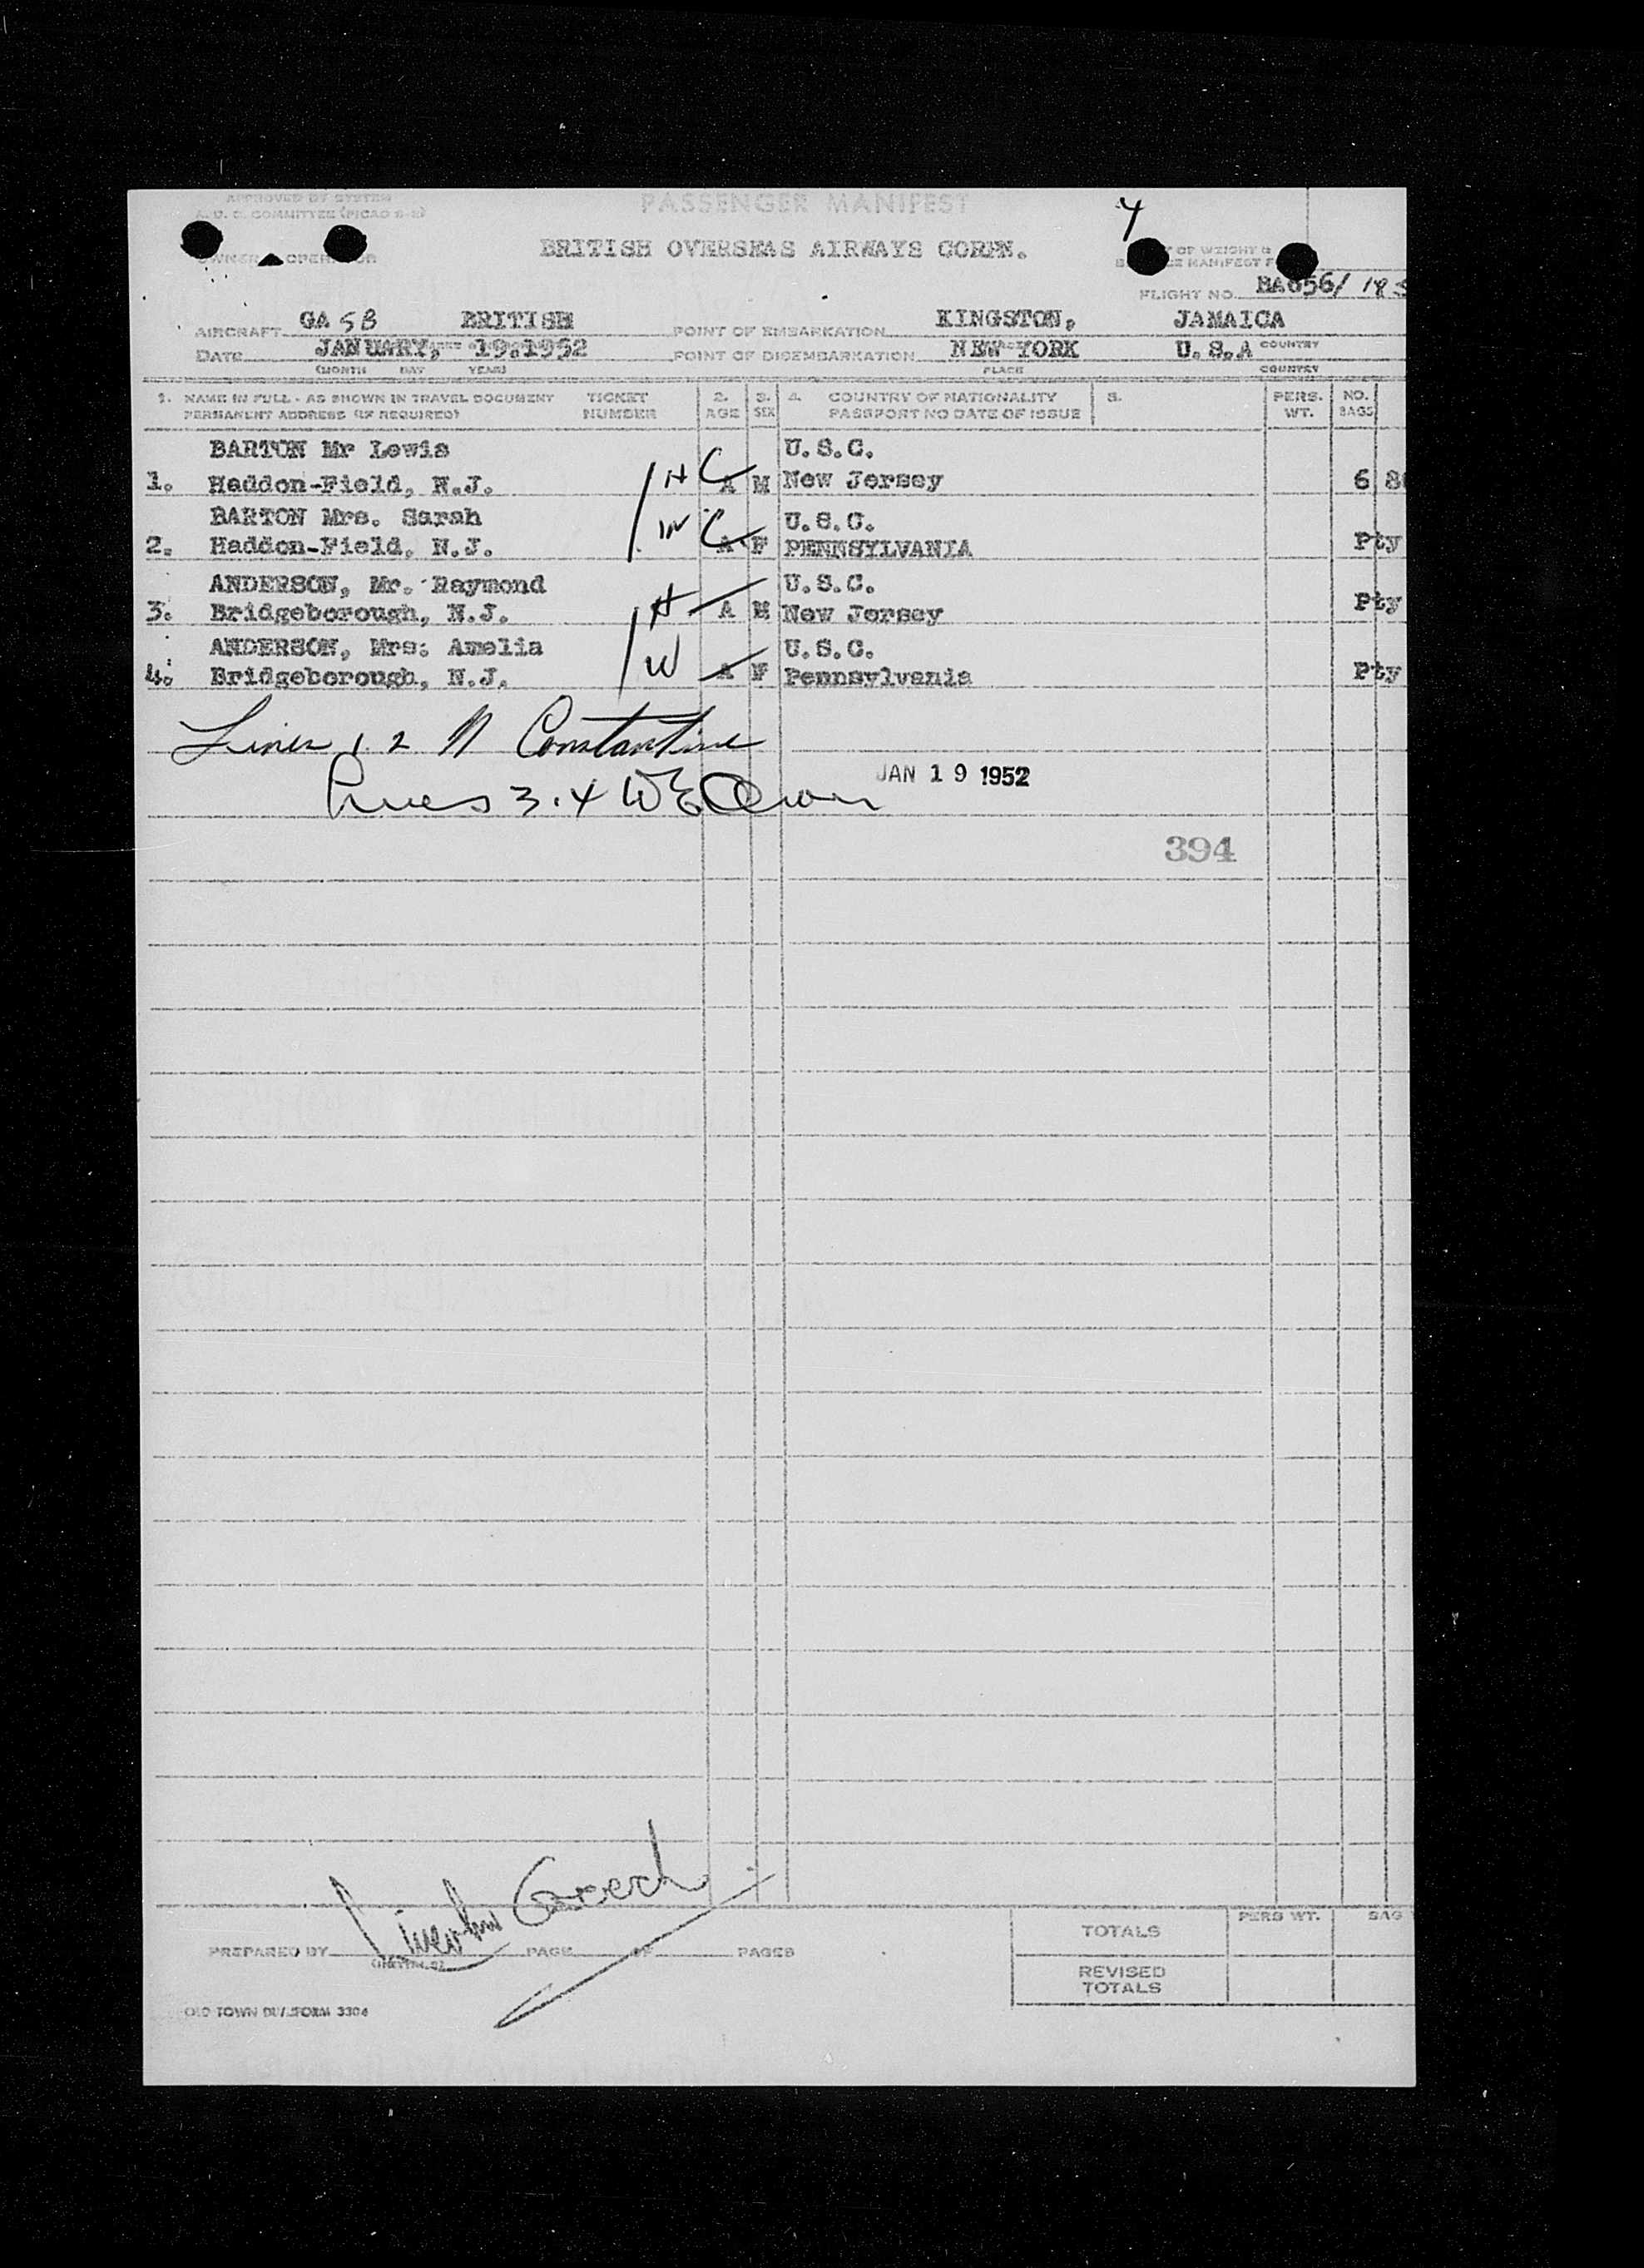 APPROVED BY SYSTEM
A. U. C. COMMITTEE (PICAO S-2)
PASSENGER MANIFEST
4
BRITISH OVERSEAS AIRWAYS CORPN.
OF WEIGHT &
MANIFEST
FLIGHT NO. BA656/
AIRCRAFT GA 5B BRITISH POINT OF EMBARKATION KINGSTON, JAMAICA
DATE JANUARY, 19.1952 POINT OF DISEMBARKATION NEW YORK U.S.A COUNTRY
(MONTH DAY YEAR) PLACE COUNTRY
1. NAME IN FULL - AS SHOWN IN TRAVEL DOCUMENT TICKET 2. 3. 4. COUNTRY OF NATIONALITY 5. PERS. NO.
PERMANENT ADDRESS (IF REQUIRED) NUMBER AGE SEX PASSPORT NO DATE OF ISSUE WT. BAGS
BARTON Mr Lewis U.S.C.
1. Haddon-Field, N.J. H C A M New Jersey 6
BARTON Mrs. Sarah U.S.C.
2. Haddon-Field, N.J. W C A F PENNSYLVANIA Pty
ANDERSON, Mr. Raymond U.S.C.
3. Bridgeborough, N.J. H A M New Jersey Pty
ANDERSON, Mrs. Amelia U.S.C.
4. Bridgeborough, N.J. W A F Pennsylvania Pty
Lines 1 2 N Constantine
JAN 19 1952
Lines 3.4
394
PREPARED BY PAGE OF PAGES
TOTALS PERS WT. BAG
REVISED
TOTALS
OLD TOWN FORM 3304